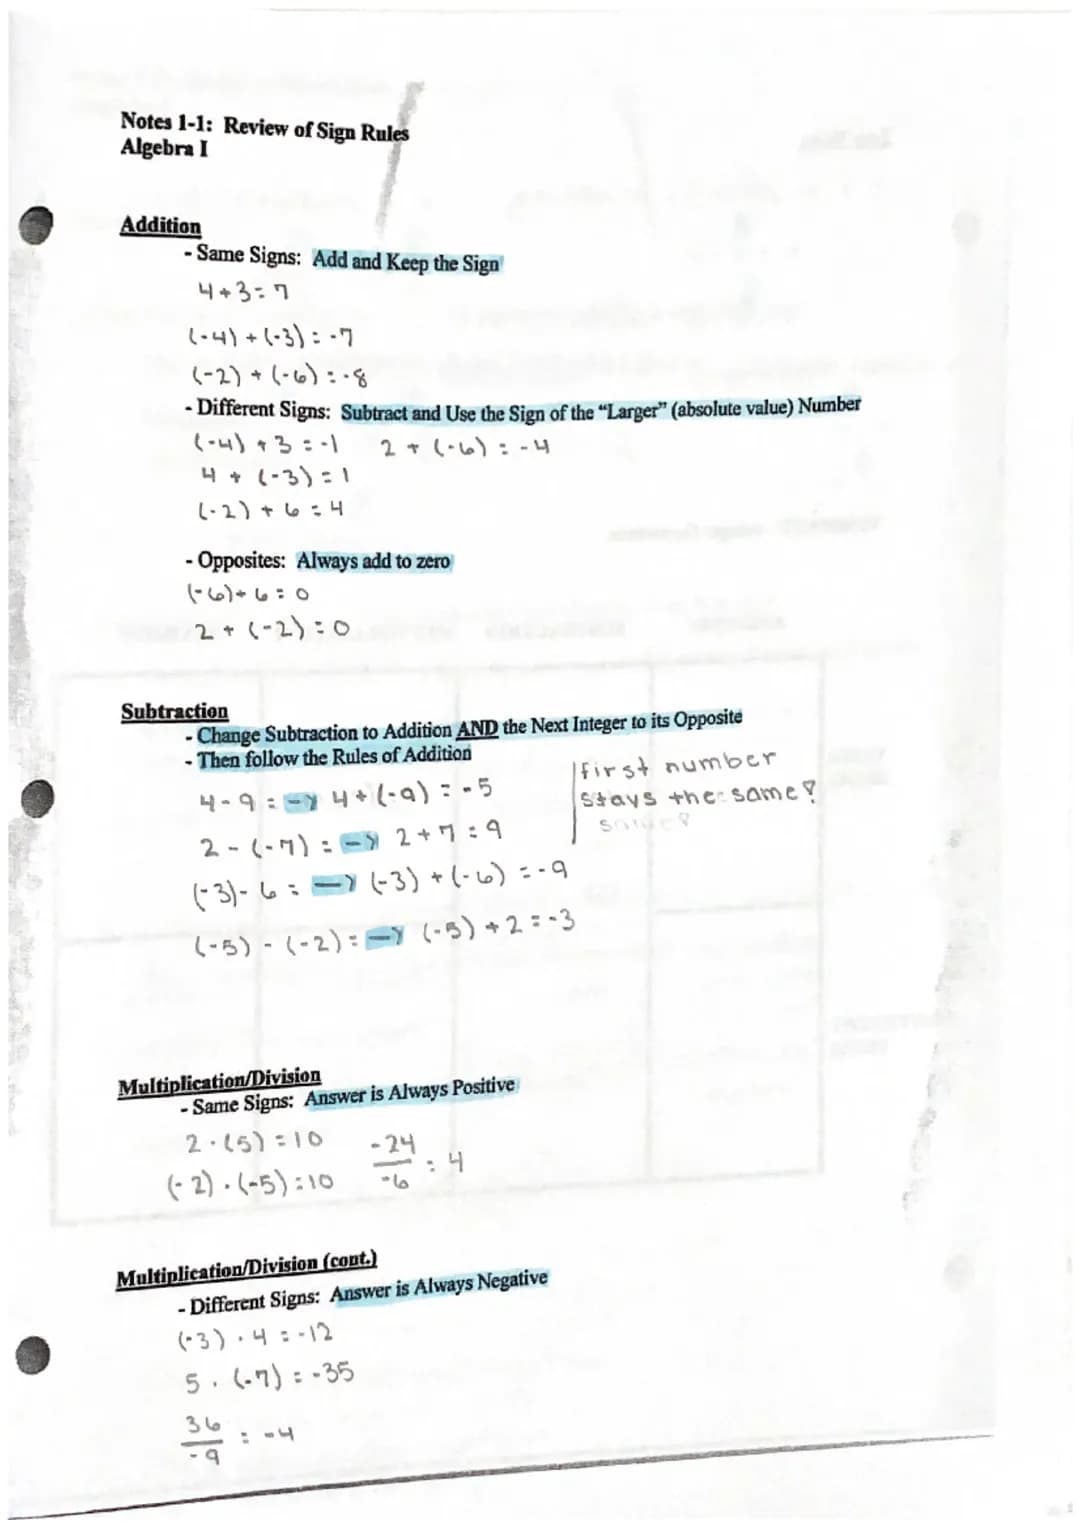 Notes 1-1: Review of Sign Rules
Algebra I
Addition
- Same Signs: Add and Keep the Sign
4+3=7
(-4) + (-3) = -7
(-2) + (-6) = -8
- Different Signs: Subtract and Use the Sign of the “Larger” (absolute value) Number
(-4) + 3 = -1 2 + (-6) = -4
4 + (-3) = 1
(-2) + 6 = 4
- Opposites: Always add to zero
(-6)+ 6 = 0
2 + (-2) = 0
Subtraction
- Change Subtraction to Addition AND the Next Integer to its Opposite
- Then follow the Rules of Addition
first number
stays the same?
4-9 = → 4+(-9) = -5
2 - (-7) = → 2+7 = 9
(-3)- 6 = → (-3) + (-6) = -9
(-5) - (-2) = → (-5) + 2 = -3
Multiplication/Division
- Same Signs: Answer is Always Positive
2·(5) = 10 -24/-6 = 4
(-2)·(-5) = 10
Multiplication/Division (cont.)
- Different Signs: Answer is Always Negative
(-3) · 4 = -12
5 · (-7) = -35
36/-9 = -4